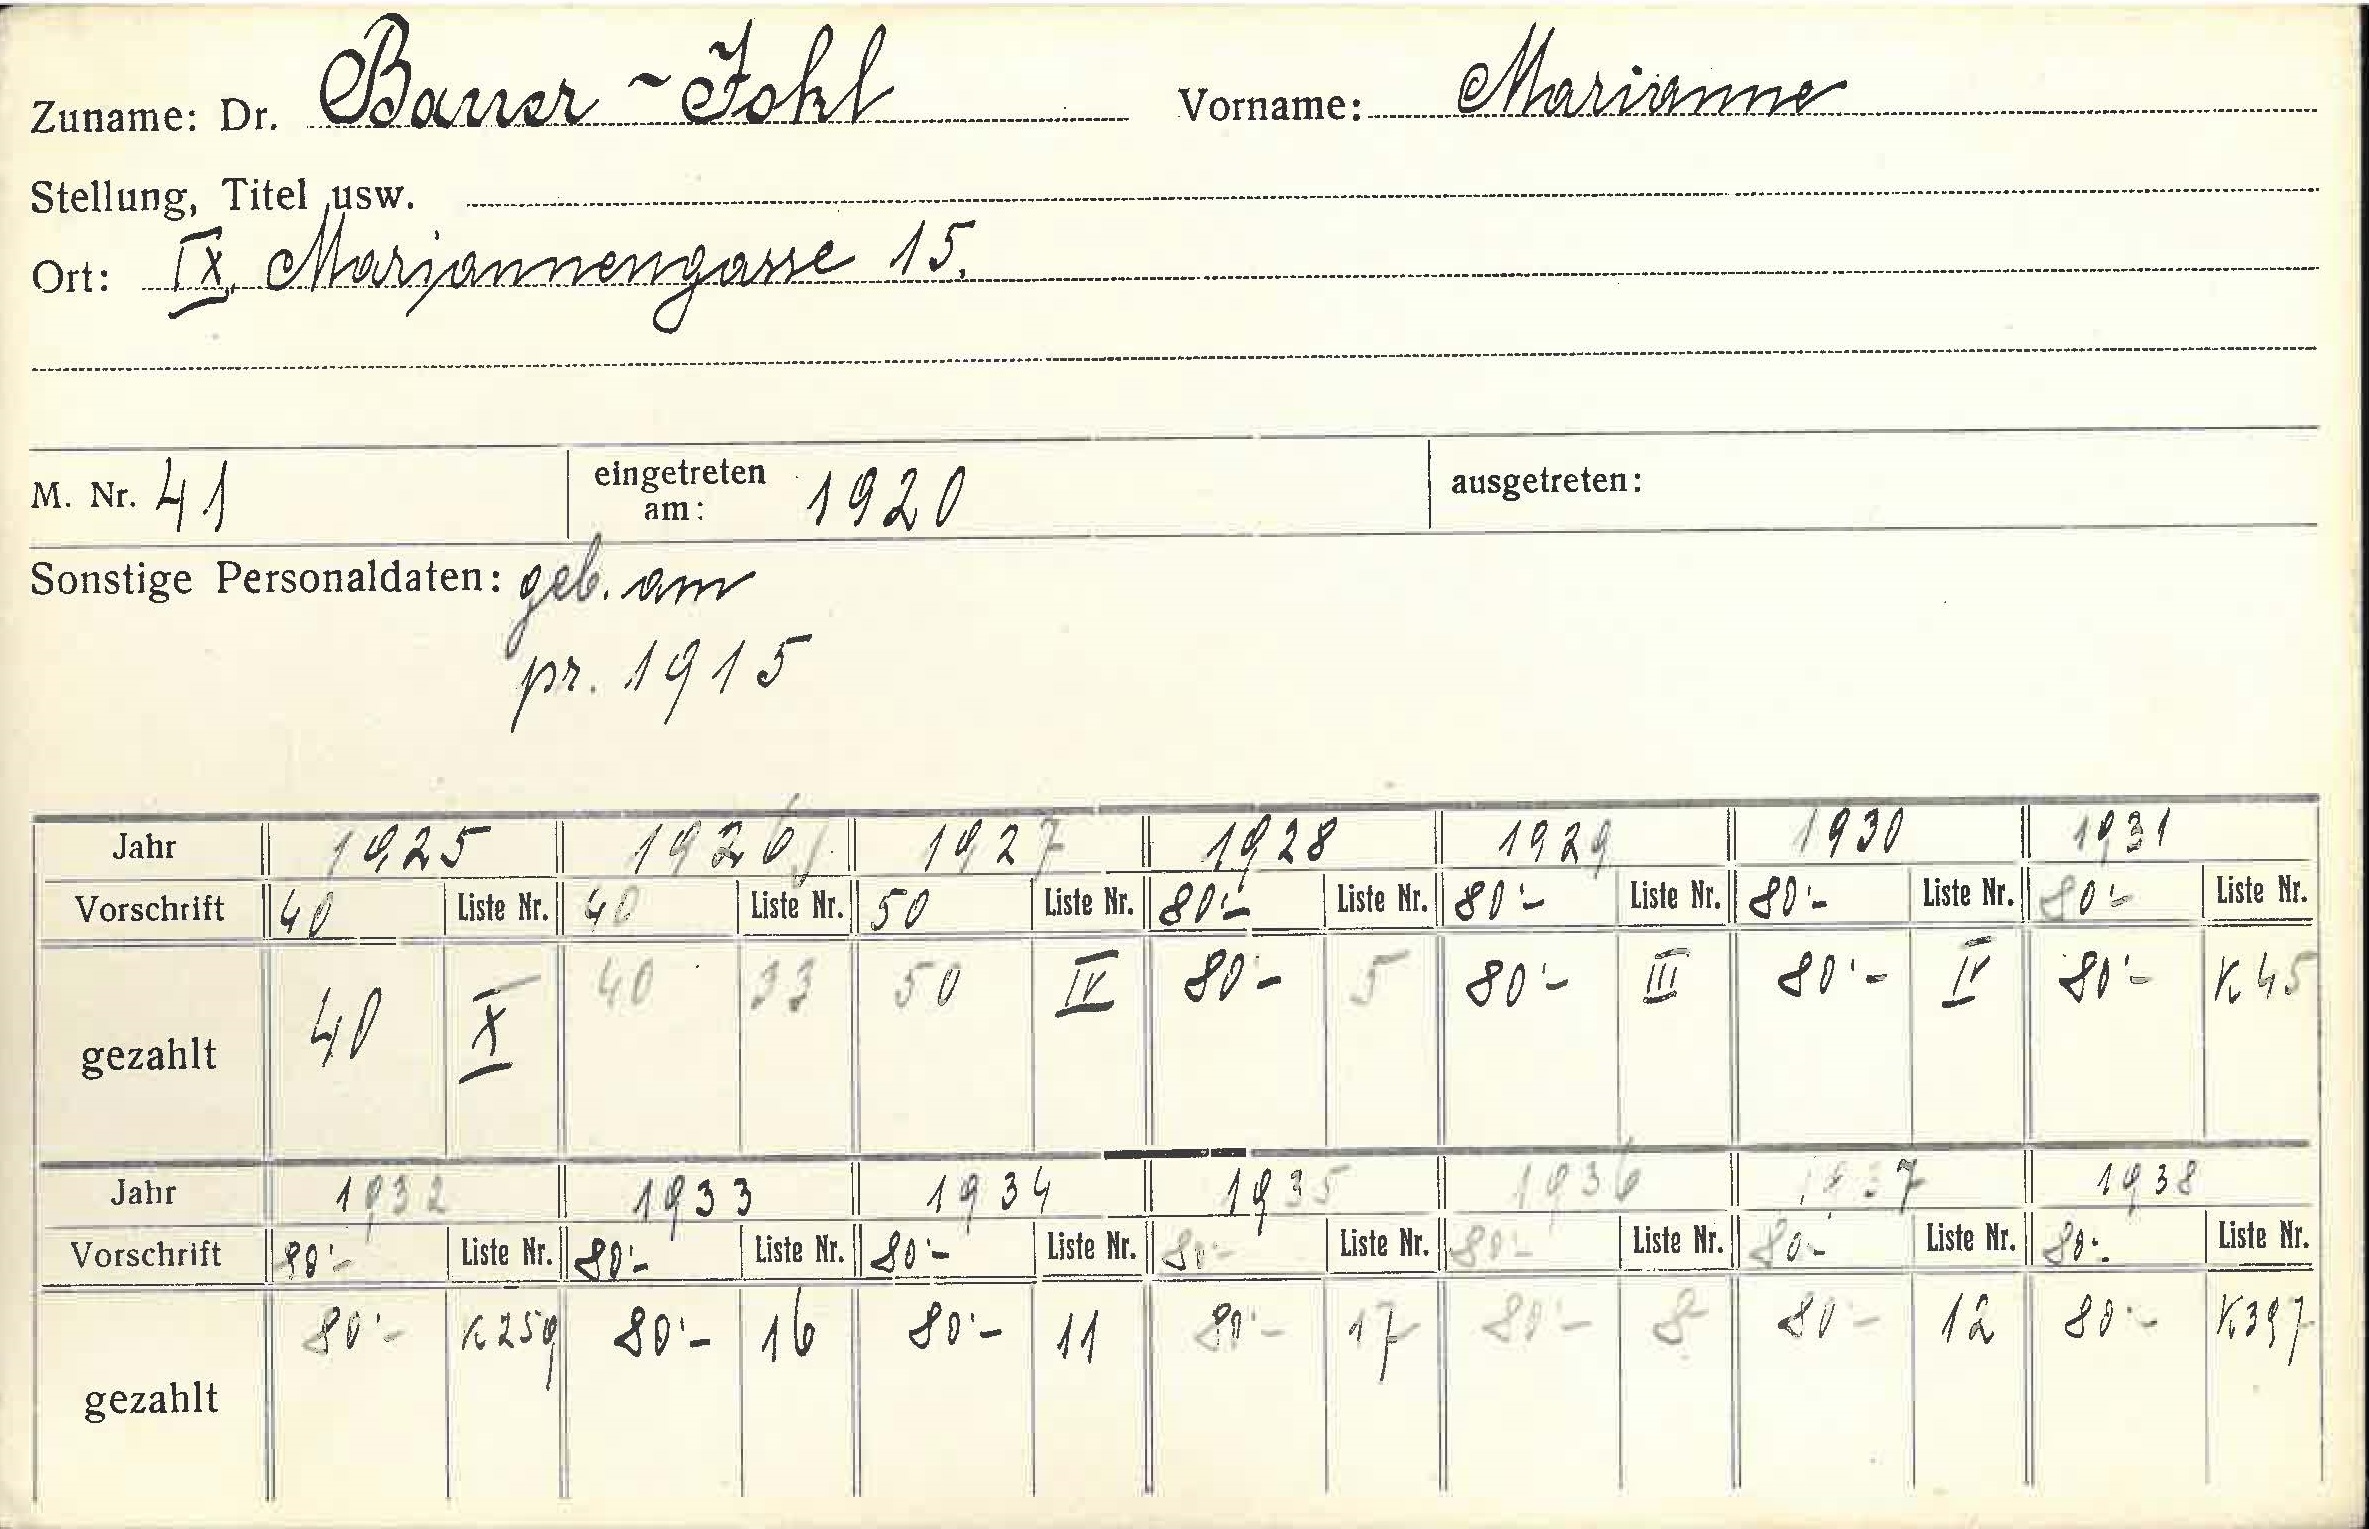 Zuname: Dr. Bauer-Jokl Vorname: Marianne
Stellung, Titel usw.
Ort: IX. Mariannengasse 15.
M. Nr. 41 eingetreten am: 1920 ausgetreten:
Sonstige Personaldaten: geb. am
pr. 1915
Jahr 1925 1926 1927 1928 1929 1930 1931
Vorschrift 40 Liste Nr. 40 Liste Nr. 50 Liste Nr. 80'- Liste Nr. 80'- Liste Nr. 80'- Liste Nr. 80'- Liste Nr.
gezahlt 40 X 40 33 50 IV 80'- 5 80'- III 80'- 80'- K 45
Jahr 1932 1933 1934 1935 1936 1937 1938
Vorschrift 80'- Liste Nr. 80'- Liste Nr. 80'- Liste Nr. 80'- Liste Nr. 80'- Liste Nr. 80'- Liste Nr. 80'- Liste Nr.
gezahlt 80'- K 259 80'- 16 80'- 11 80'- 17 80'- 8 80'- 12 80'- K397